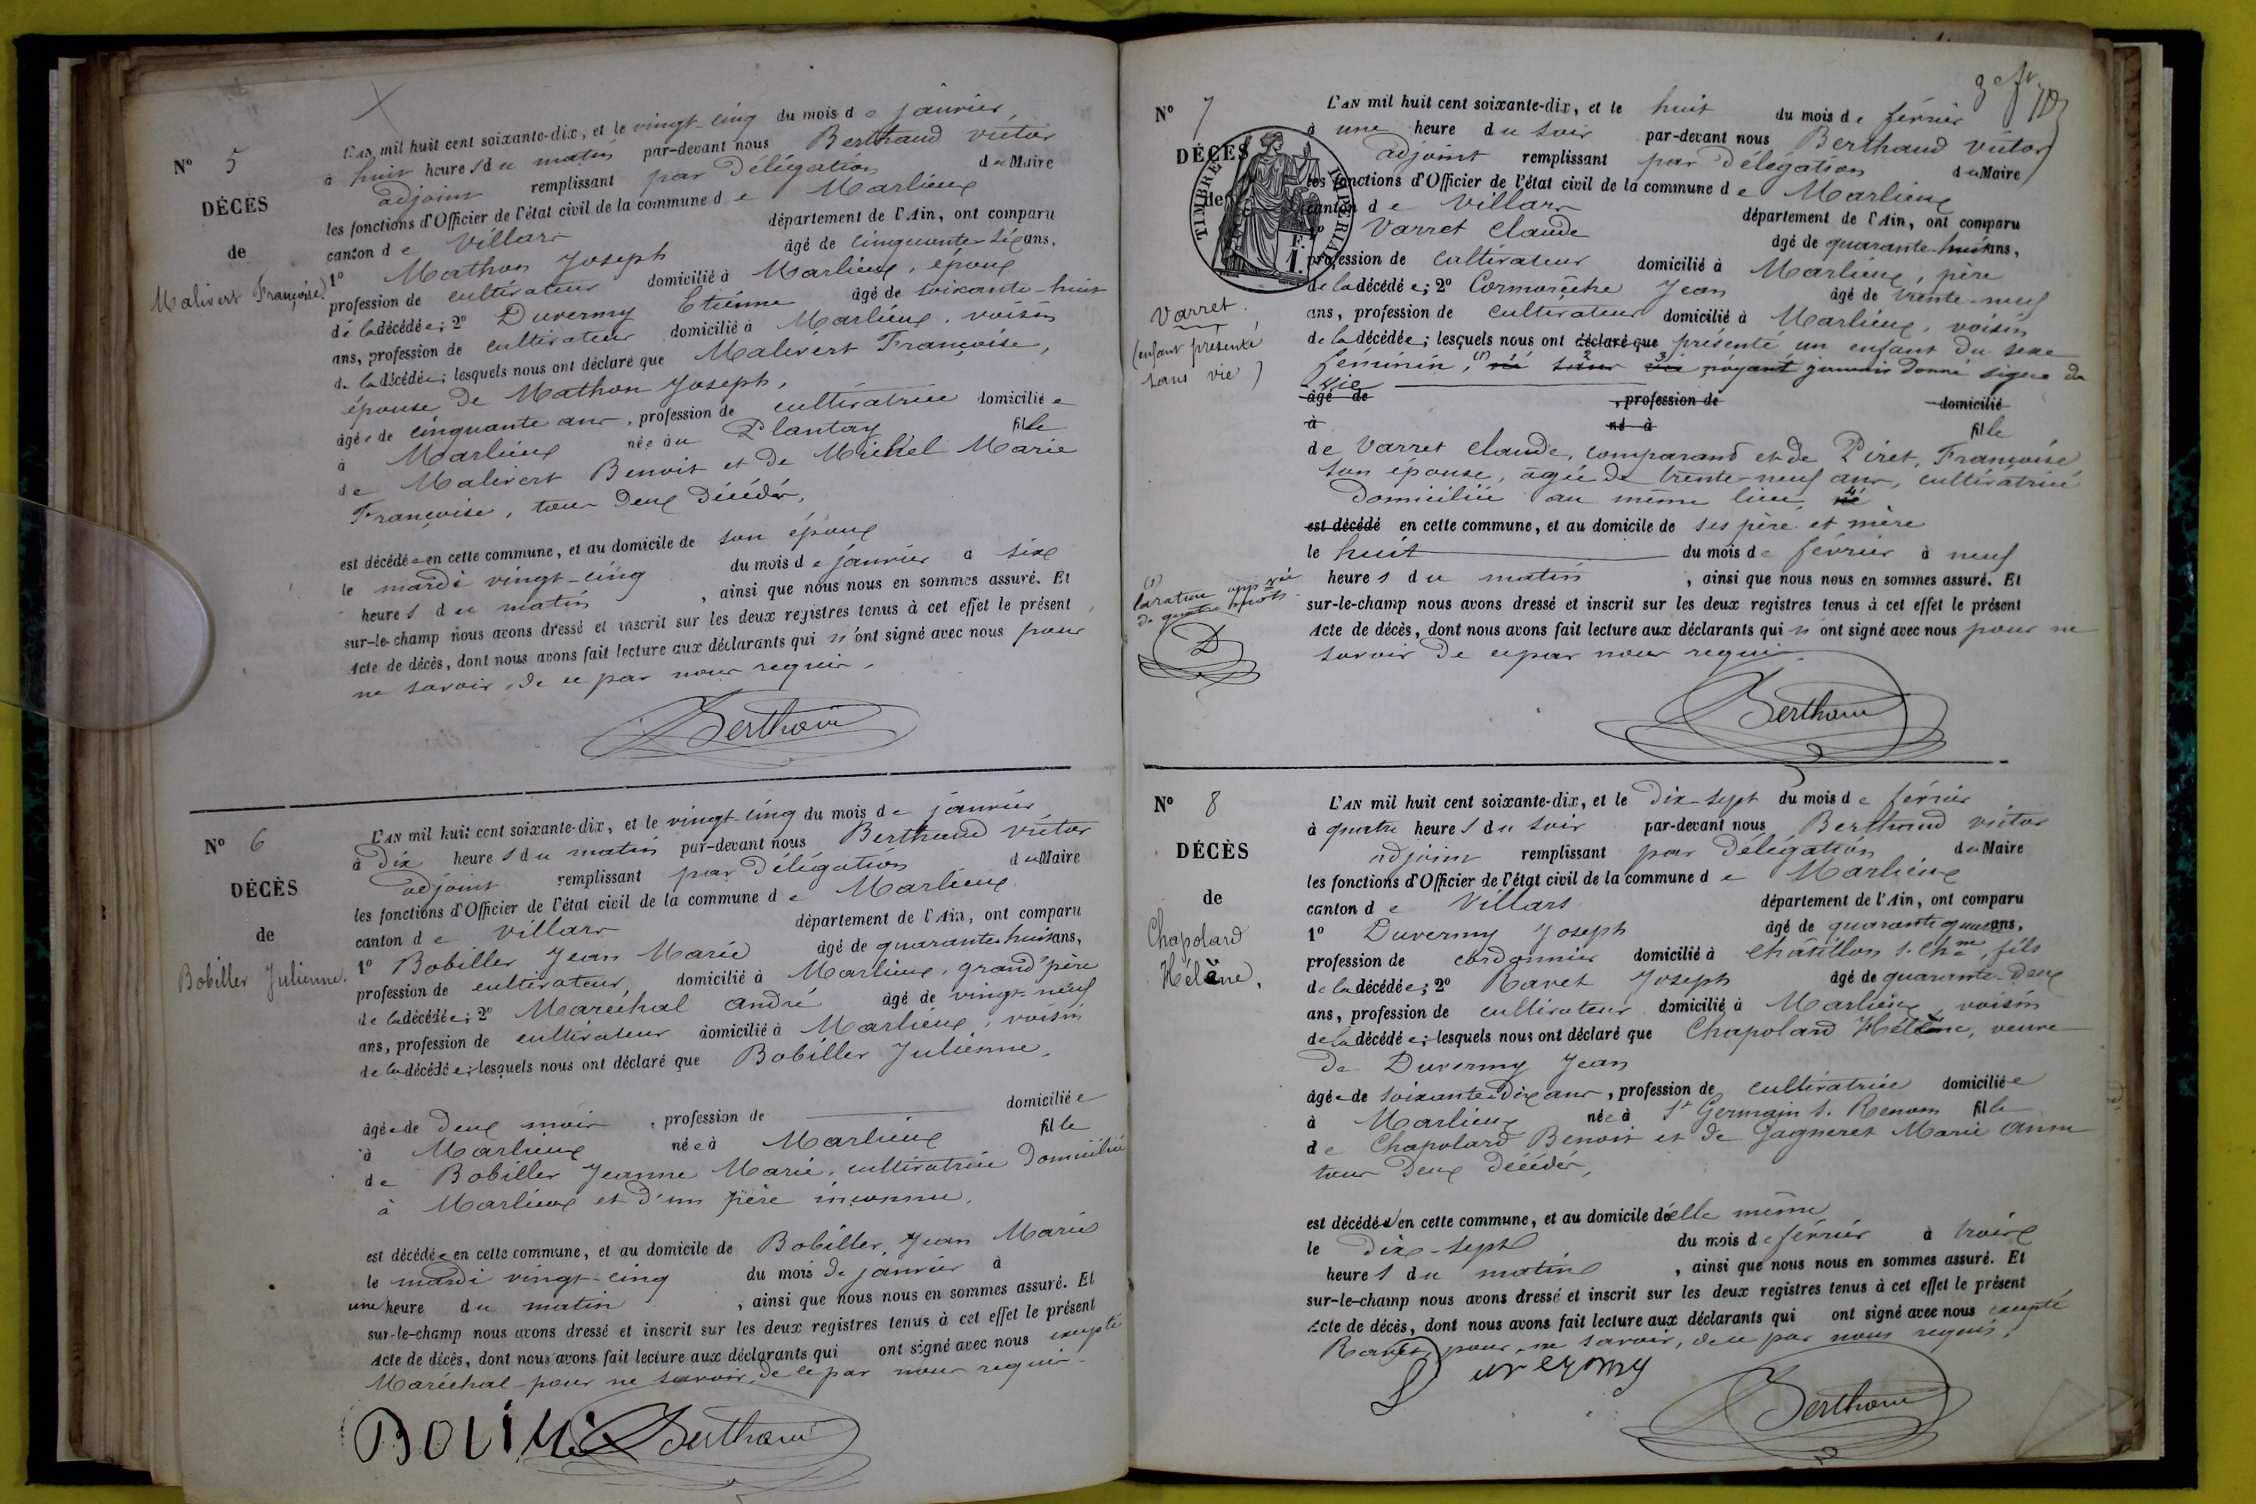 N° 5
DÉCÈS
de
Malivert Françoise
L'AN mil huit cent soixante-dix, et le vingt-cinq du mois de janvier,
à huit heures du matin par-devant nous Berthaud victor
adjoint remplissant par Délégation du Maire
les fonctions d'Officier de l'état civil de la commune de Marlieux
canton de Villars département de l'Ain, ont comparu
1° Mathon Joseph âgé de cinquante-six ans,
profession de cultivateur domicilié à Marlieux, époux
de la décédée; 2° Duvermy Etienne âgé de soixante-huit
ans, profession de cultivateur domicilié à Marlieux, voisin
de la décédée; lesquels nous ont déclaré que Malivert Françoise,
épouse de Mathon Joseph,
âgée de cinquante ans, profession de cultivatrice domiciliée
à Marlieux née au Plantay fille
de Malivert Benoit et de Michel Marie
Françoise, tous deux décédés,
est décédée en cette commune, et au domicile de son époux
le mardi vingt-cinq du mois de janvier à six
heures du matin, ainsi que nous nous en sommes assuré. Et
sur-le-champ nous avons dressé et inscrit sur les deux registres tenus à cet effet le présent
Acte de décès, dont nous avons fait lecture aux déclarants qui n'ont signé avec nous pour
ne savoir, de ce par nous requis.
Berthaud
N° 6
DÉCÈS
de
Bobiller Julienne.
L'AN mil huit cent soixante-dix, et le vingt-cinq du mois de janvier
à dix heures du matin par-devant nous Berthaud victor
adjoint remplissant par Délégation du Maire
les fonctions d'Officier de l'état civil de la commune de Marlieux
canton de villars département de l'Ain, ont comparu
1° Bobiller Jean Marie âgé de quarante huit ans,
profession de cultivateur domicilié à Marlieux, grand'père
de la décédée; 2° Maréchal andré âgé de vingt-neuf
ans, profession de cultivateur domicilié à Marlieux, voisin
de la décédée; lesquels nous ont déclaré que Bobiller Julienne,
âgée de deux mois, profession de domiciliée
à Marlieux née à Marlieux fille
de Bobiller Jeanne Marie, cultivatrice domiciliée
à Marlieux et d'un père inconnu,
est décédée en cette commune, et au domicile de Bobiller, Jean Marie
le mardi vingt-cinq du mois de janvier à
une heure du matin, ainsi que nous nous en sommes assuré. Et
sur-le-champ nous avons dressé et inscrit sur les deux registres tenus à cet effet le présent
Acte de décès, dont nous avons fait lecture aux déclarants qui ont signé avec nous excepté
Maréchal pour ne savoir, de ce par nous requis.
Berthaud
N° 7
DÉCÈS
de
TIMBRE IMPÉRIAL
1 F.
Varret.
(enfant présenté
sans vie)
L'AN mil huit cent soixante-dix, et le huit du mois de février
à une heure du soir par-devant nous Berthaud victor
adjoint remplissant par Délégation du Maire
les fonctions d'Officier de l'état civil de la commune de Marlieux
canton de Villars département de l'Ain, ont comparu
1° Varret Claude âgé de quarante-huit ans,
profession de cultivateur domicilié à Marlieux, père
de la décédée; 2° Cormorèche Jean âgé de trente-neuf
ans, profession de cultivateur domicilié à Marlieux, voisin
de la décédée; lesquels nous ont déclaré que présenté un enfant du sexe
féminin, (1) né sans vie n'ayant jamais donné signe de
vie
âgé de, profession de domicilié
à né à fille
de Varret Claude, comparant et de Piret, Françoise
son épouse, âgée de trente-neuf ans, cultivatrice
domiciliée au même lieu, né
est décédé en cette commune, et au domicile de ses père et mère
le huit du mois de février à neuf
heures du matin, ainsi que nous nous en sommes assuré. Et
sur-le-champ nous avons dressé et inscrit sur les deux registres tenus à cet effet le présent
Acte de décès, dont nous avons fait lecture aux déclarants qui n'ont signé avec nous pour ne
savoir de ce par nous requis.
(1)
de quatre mots
B
Berthaud
N° 8
DÉCÈS
de
Chapolard
Hélène,
L'AN mil huit cent soixante-dix, et le dix-sept du mois de février
à quatre heures du soir par-devant nous Berthaud victor
adjoint remplissant par Délégation du Maire
les fonctions d'Officier de l'état civil de la commune de Marlieux
canton de Villars département de l'Ain, ont comparu
1° Duvermy Joseph âgé de quarante ans,
profession de cordonnier domicilié à Châtillon s. Chne, fils
de la décédée; 2° Ravet Joseph âgé de quarante-deux
ans, profession de cultivateur domicilié à Marlieux, voisin
de la décédée; lesquels nous ont déclaré que Chapolard Hélène, veuve
de Duvermy Jean
âgée de soixante-dix ans, profession de cultivatrice domiciliée
à Marlieux née à St Germain s. Renom fille
de Chapolard Benoit et de Gagneret Marie anne
tous deux décédés,
est décédée en cette commune, et au domicile d'elle même
le dix-sept du mois de février à trois
heures du matin, ainsi que nous nous en sommes assuré. Et
sur-le-champ nous avons dressé et inscrit sur les deux registres tenus à cet effet le présent
Acte de décès, dont nous avons fait lecture aux déclarants qui ont signé avec nous excepté
Ravet, pour ne savoir, de ce par nous requis.
Berthaud